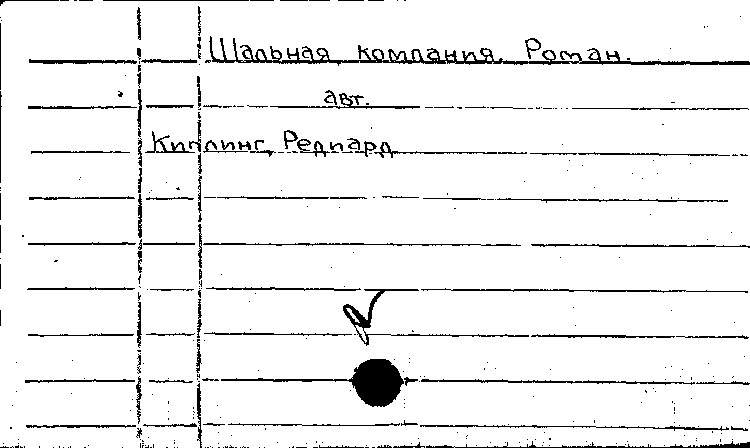 Шальная компания. Роман.
авт.
Киплинг, Редиард